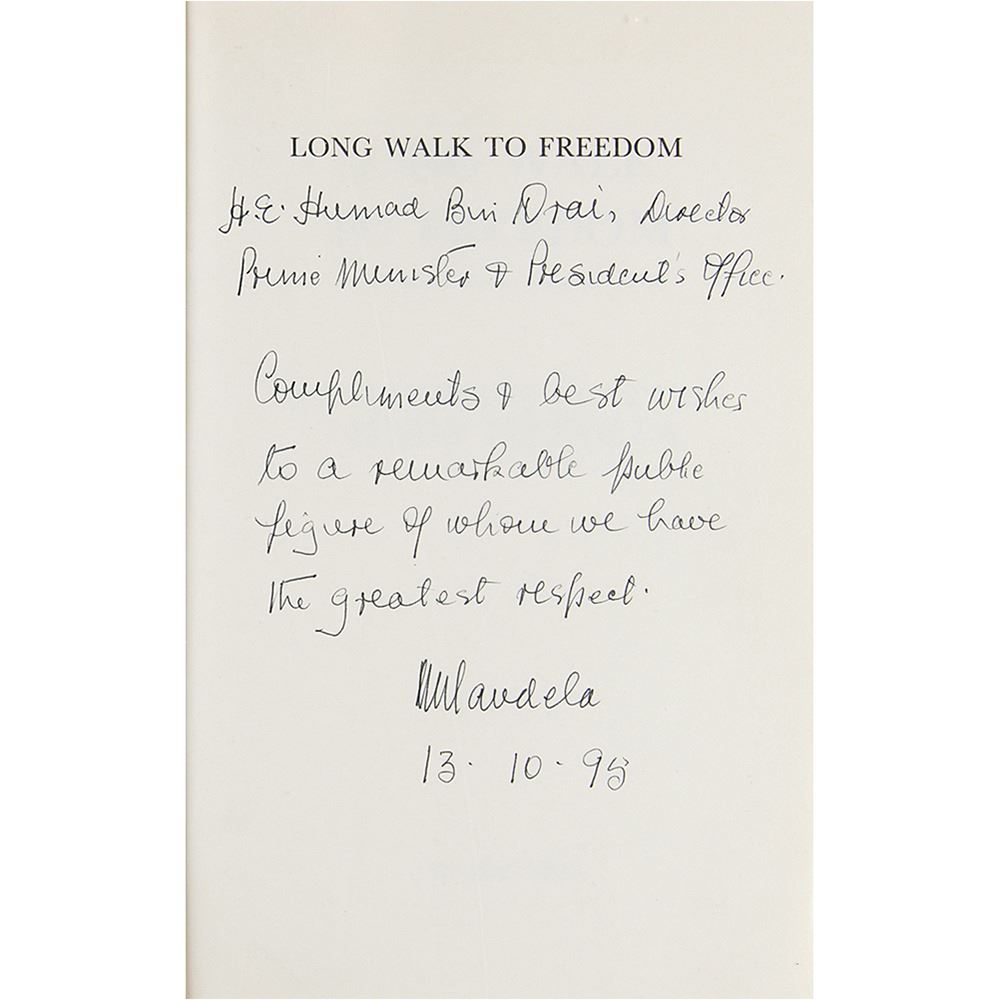 LONG WALK TO FREEDOM
H.E. Humad Bin Drai, Director
Prime Minister & President's Office.
Compliments & best wishes
to a remarkable public
figure of whom we have
the greatest respect.
NMandela
13. 10. 95